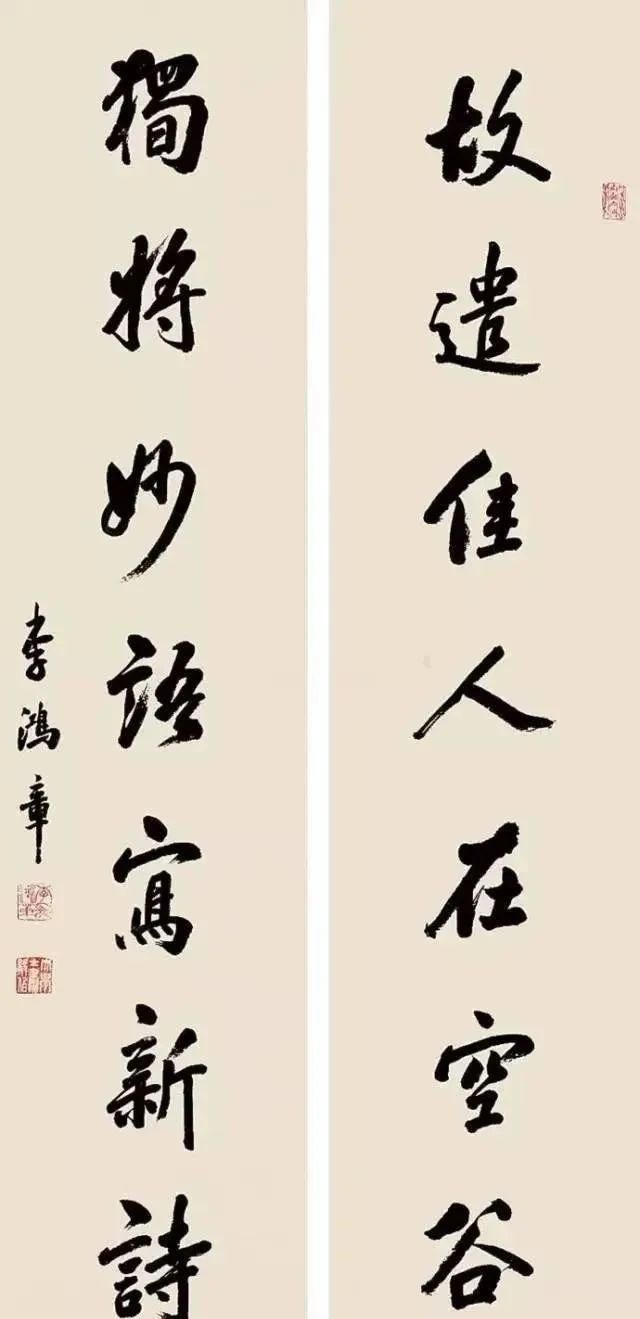 故遣佳人在空谷
獨將妙語寫新詩
李鴻章